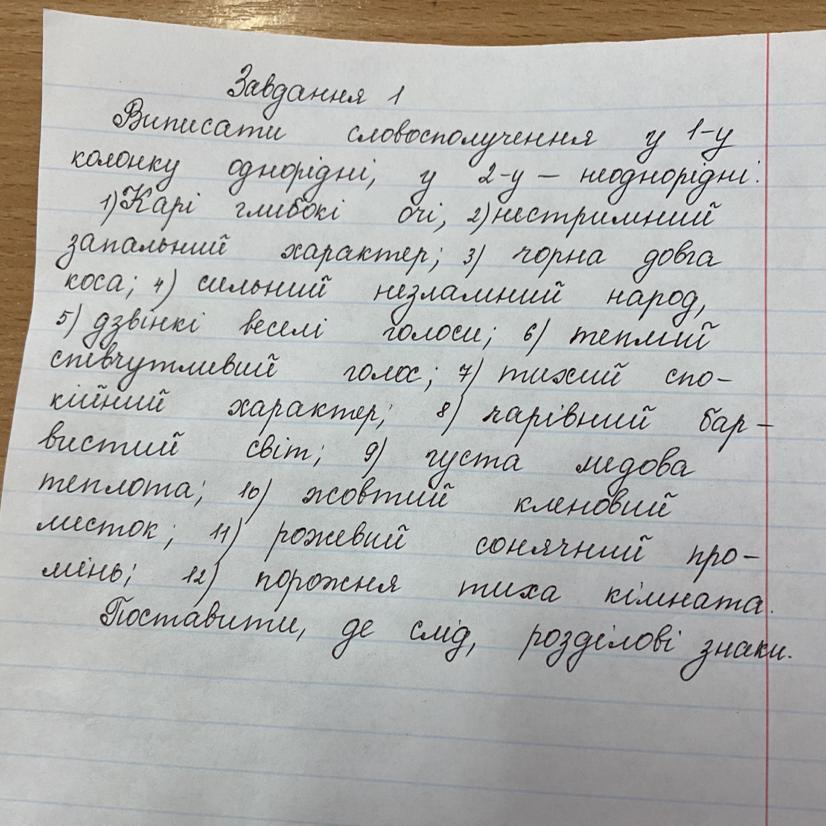 Завдання 1
Виписати словосполучення у 1-у
колонку однорідні, у 2-у – неоднорідні:
1) Карі глибокі очі, 2) нестримний
запальний характер; 3) чорна довга
коса; 4) сильний незламний народ,
5) дзвінкі веселі голоси; 6) теплий
співчутливий голос; 7) тихий спо-
кійний характер; 8) чарівний бар-
вистий світ; 9) густа медова
теплота; 10) жовтий кленовий
листок; 11) рожевий сонячний про-
мінь; 12) порожня тиха кімната.
Поставити, де слід, розділові знаки.